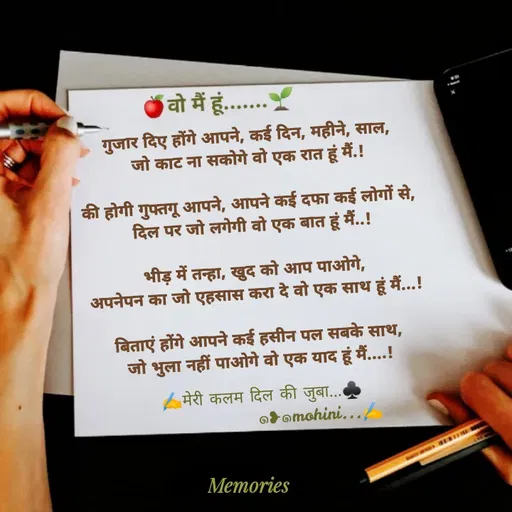 🍎वो मैं हूं.......🌱
गुजार दिए होंगे आपने, कई दिन, महीने, साल,
जो काट ना सकोगे वो एक रात हूं मैं.!
की होगी गुफ्तगू आपने, आपने कई दफा कई लोगों से,
दिल पर जो लगेगी वो एक बात हूं मैं..!
भीड़ में तन्हा, खुद को आप पाओगे,
अपनेपन का जो एहसास करा दे वो एक साथ हूं मैं...!
बिताएं होंगे आपने कई हसीन पल सबके साथ,
जो भुला नहीं पाओगे वो एक याद हूं मैं....!
✍️मेरी कलम दिल की जुबा...♣️
๑❥๑mohini...✍️
Memories